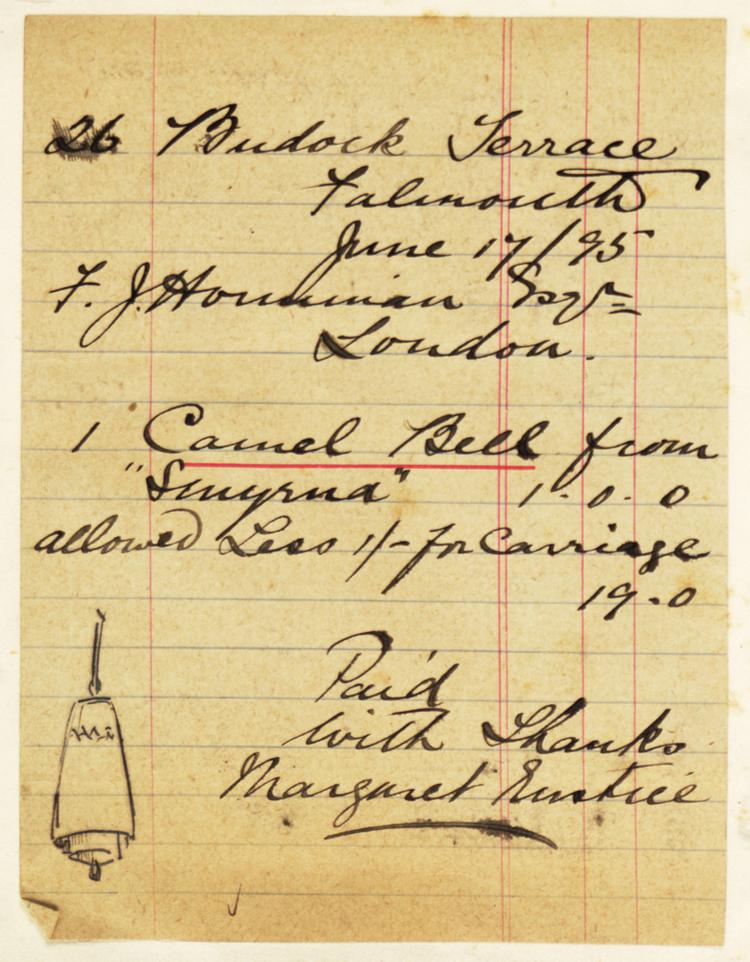 26 Budock Terrace
Falmouth
June 17/95
F. J. Horniman Esqr
London.
1 Camel Bell from
"Smyrna" 1.0.0
allowed Less 1/- for Carriage
19.0
Paid
with Thanks
Margaret Eustice